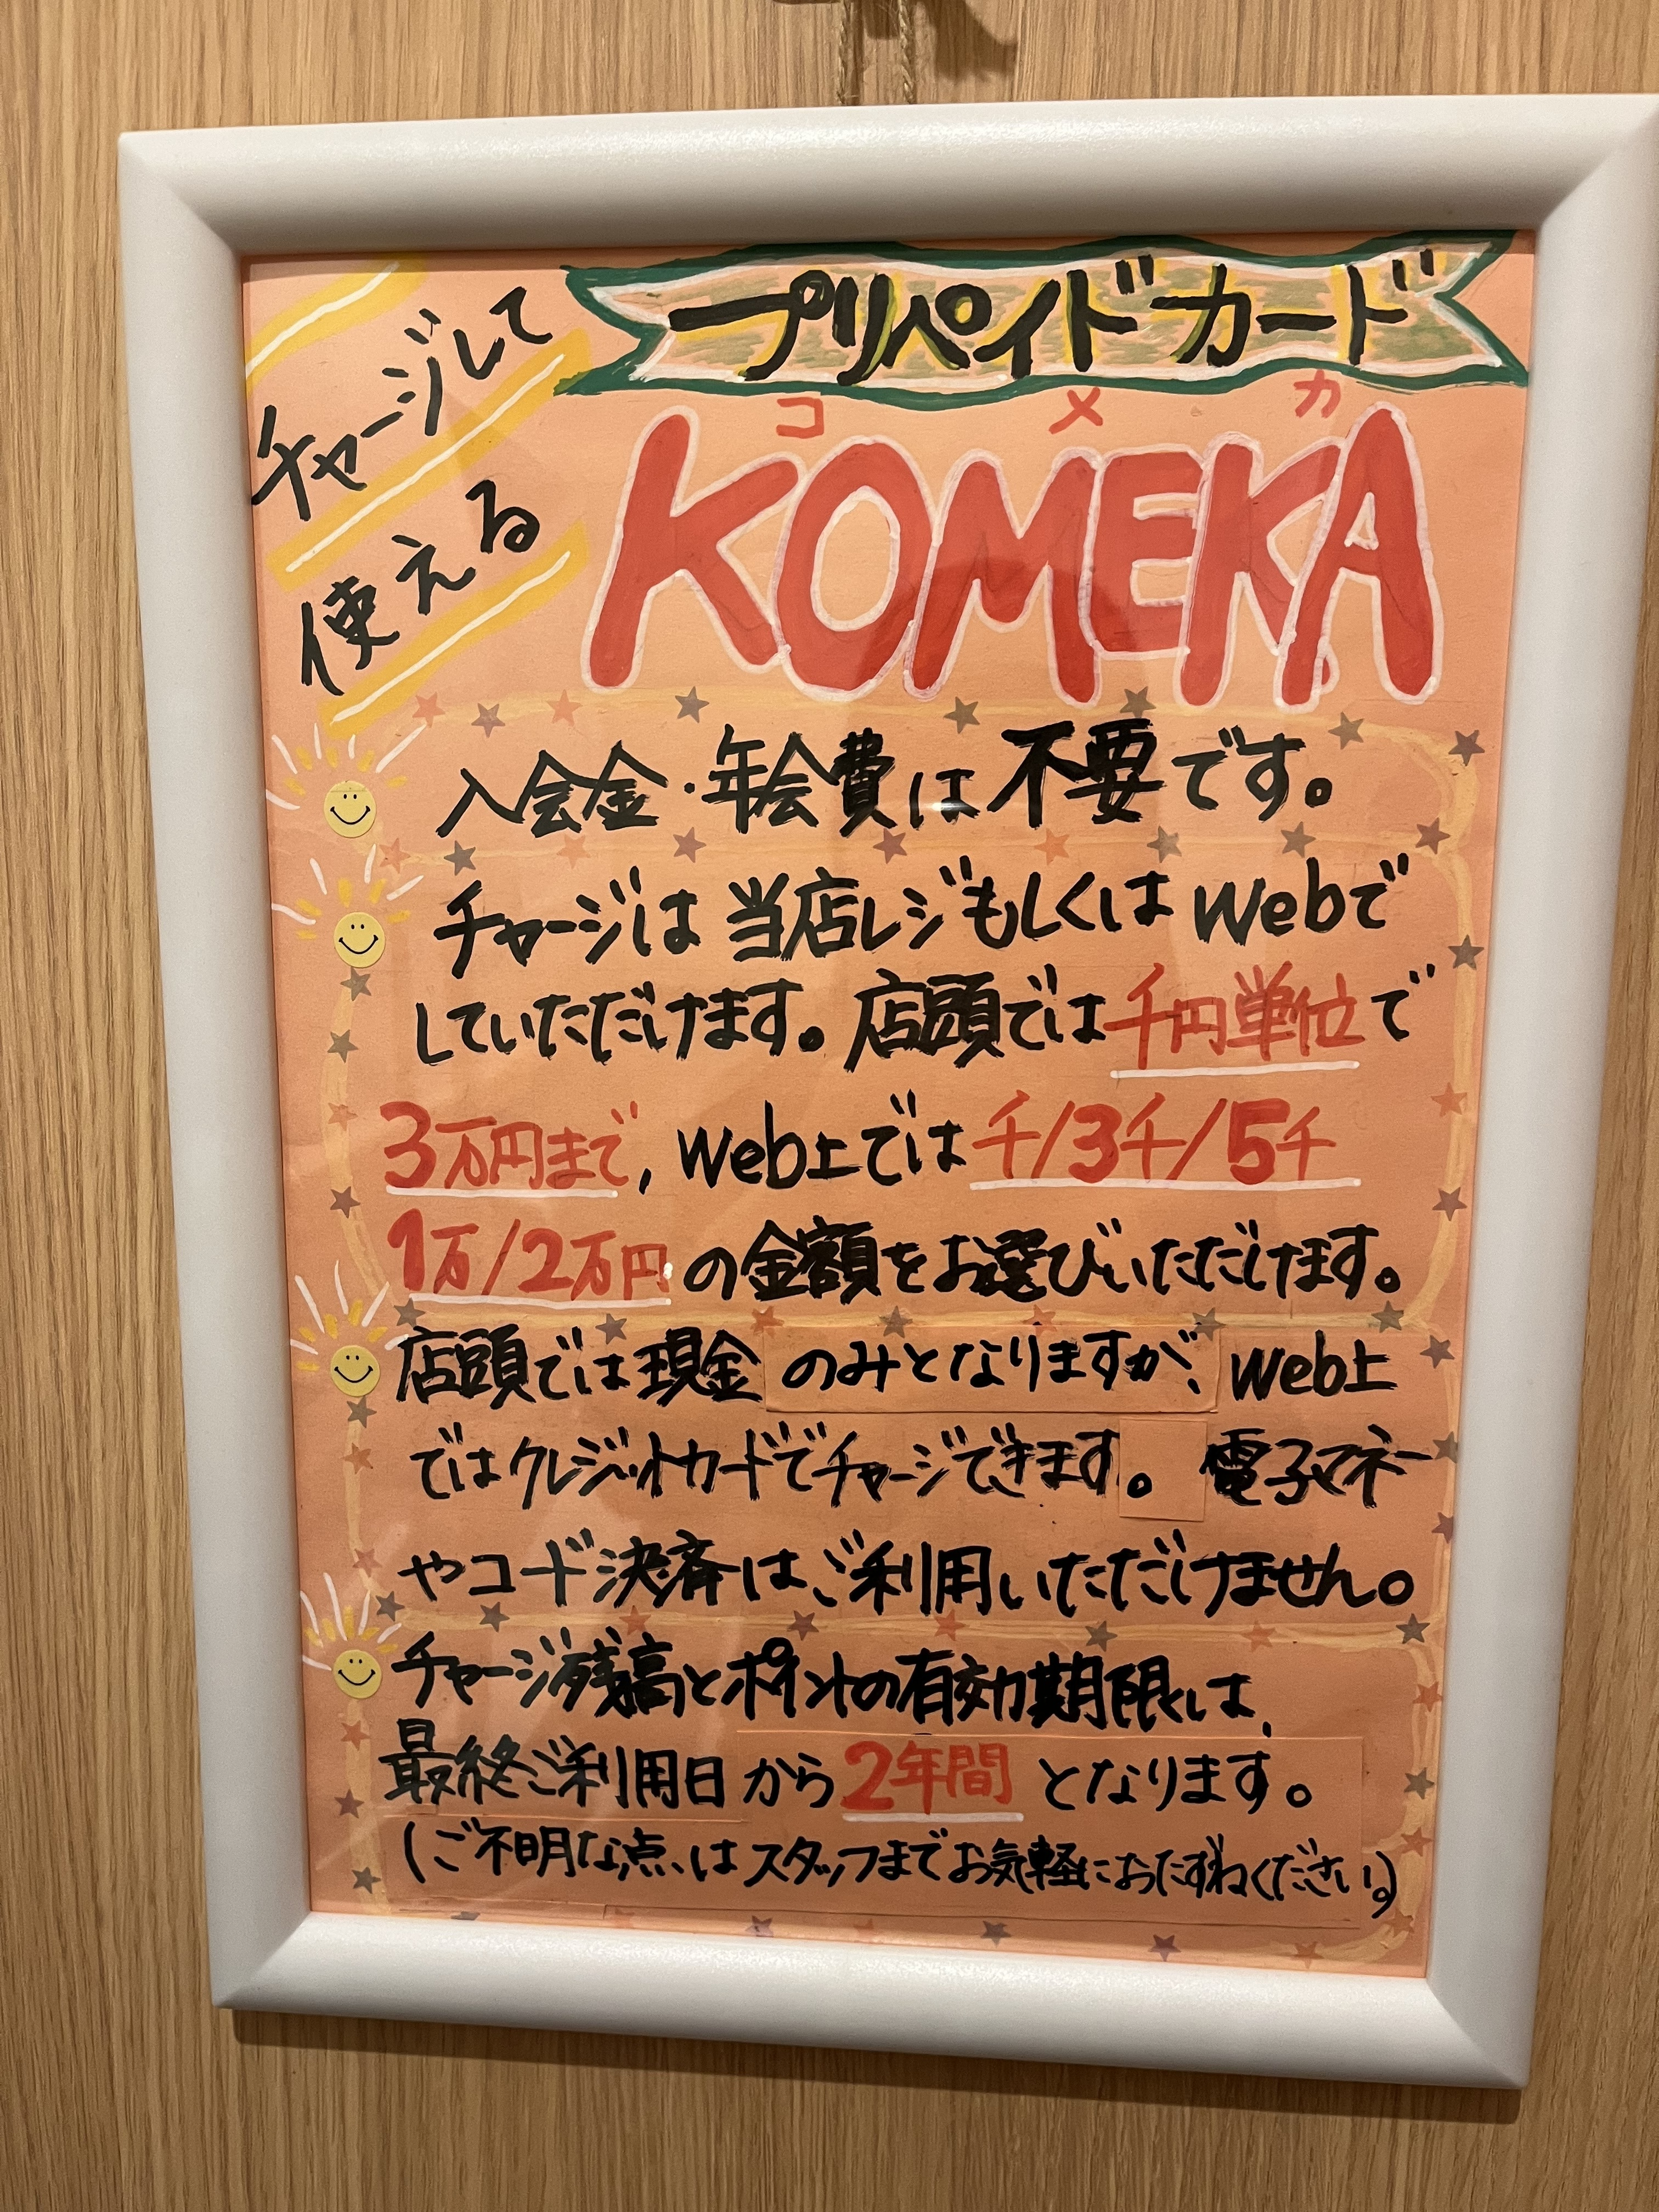 チャージして
使える
プリペイドカード
コメカ
KOMEKA
入会金・年会費は不要です。
チャージは当店レジもしくはWebで
していただけます。店頭では千円単位で
3万円まで、Web上では千/3千/5千
1万/2万円の金額をお選びいただけます。
店頭では現金のみとなりますが、Web上
ではクレジットカードでチャージできます。電子マネー
やコード決済はご利用いただけません。
チャージ残高とポイントの有効期限は、
最終ご利用日から2年間となります。
(ご不明な点は スタッフまでお気軽におたずねください。)